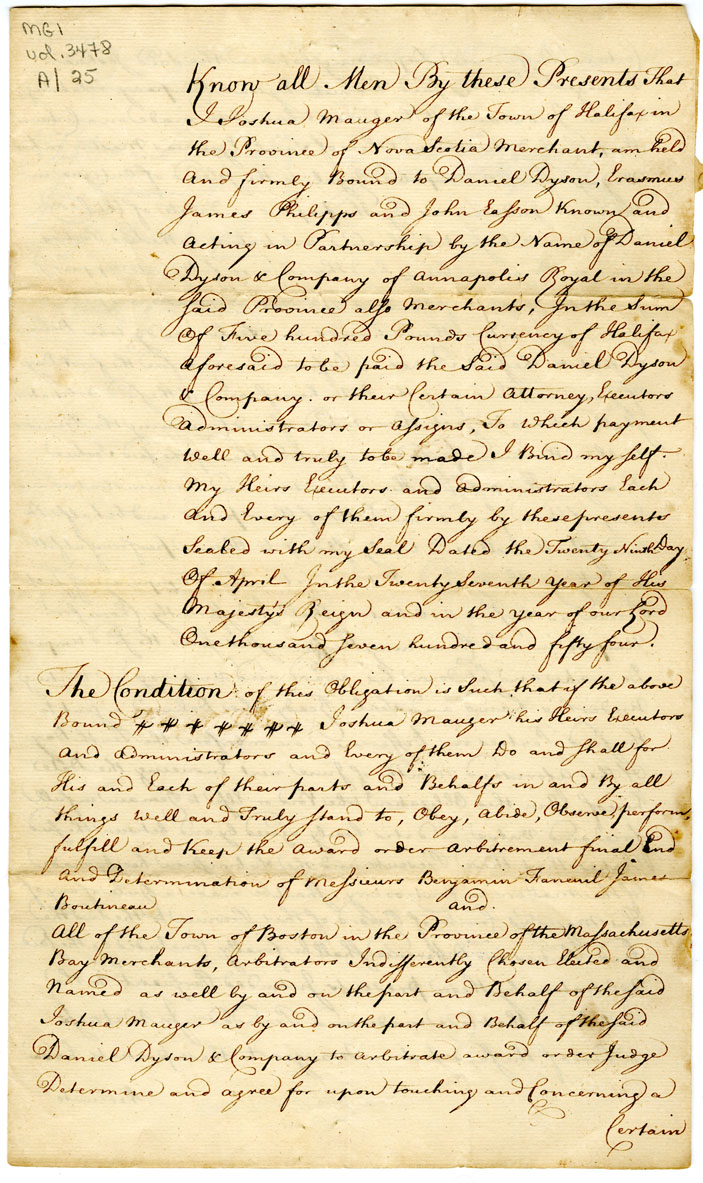 MG1
vol. 3478
A/25
Know all Men By these Presents That
I Joshua Mauger of the Town of Halifax in
the Province of Nova Scotia Merchant, am held
And firmly Bound to Daniel Dyson, Erasmus
James Philipps and John Easson Known and
Acting in Partnership by the Name of Daniel
Dyson & Company of Annapolis Royal in the
Said Province also Merchants, In the Sum
Of Five hundred Pounds Currency of Halifax
aforesaid to be paid the Said Daniel Dyson
& Company. or their Certain Attorney, Executors
Administrators or Assigns, To Which payment
Well and truly to be made I Bind my self.
My Heirs Executors and Administrators Each
And Every of them firmly by these presents
Sealed with my Seal Dated the Twenty Ninth Day
Of April In the Twenty Seventh Year of His
Majesty's Reign and in the year of our Lord
One thousand Seven hundred and fifty four.
The Condition of this Obligation is Such that if the above
Bound Joshua Mauger his Heirs Executors
And Administrators and Every of them Do and Shall for
His and Each of their parts and Behalfs in and By all
things Well and Truly Stand to, Obey, Abide, Observe, perform,
fulfill and Keep the Award order Arbitrement final End
And Determination of Messieurs Benjamin Faneuil James
Boutineau and
All of the Town of Boston in the Province of the Massachusetts
Bay Merchants, Arbitrators Indifferently Chosen Elected and
Named as well by and on the part and Behalf of the Said
Joshua Mauger as by and on the part and Behalf of the Said
Daniel Dyson & Company to Arbitrate award order Judge
Determine and agree for upon touching and Concerning a
Certain